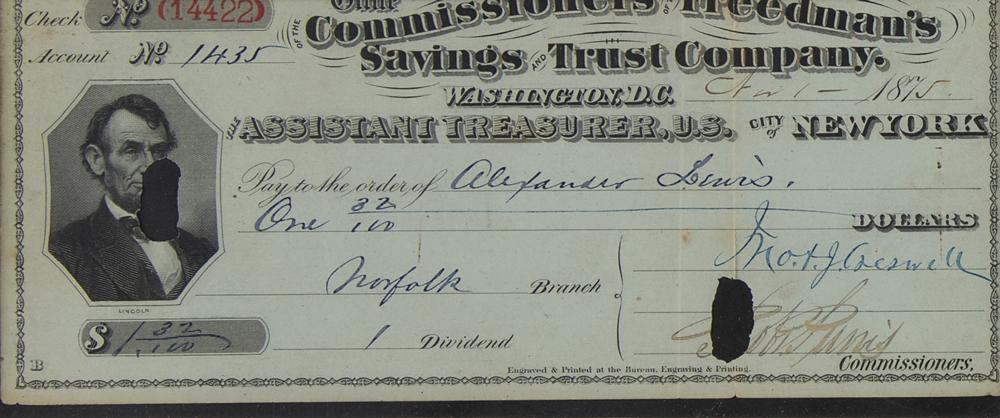 Check No (14422) OF THE Commissioners OF THE Freedman's
Account No 1435
Savings AND Trust Company.
WASHINGTON, D.C. 1 - 1875.
THE ASSISTANT TREASURER, U.S. CITY of NEW YORK
Pay to the order of Alexander Lewis.
One 32/100 DOLLARS
Jno. A. J. Creswell
Norfolk Branch
LINCOLN
$ 1 32/100
1 Dividend
B
Commissioners,
Engraved & Printed at the Bureau, Engraving & Printing.